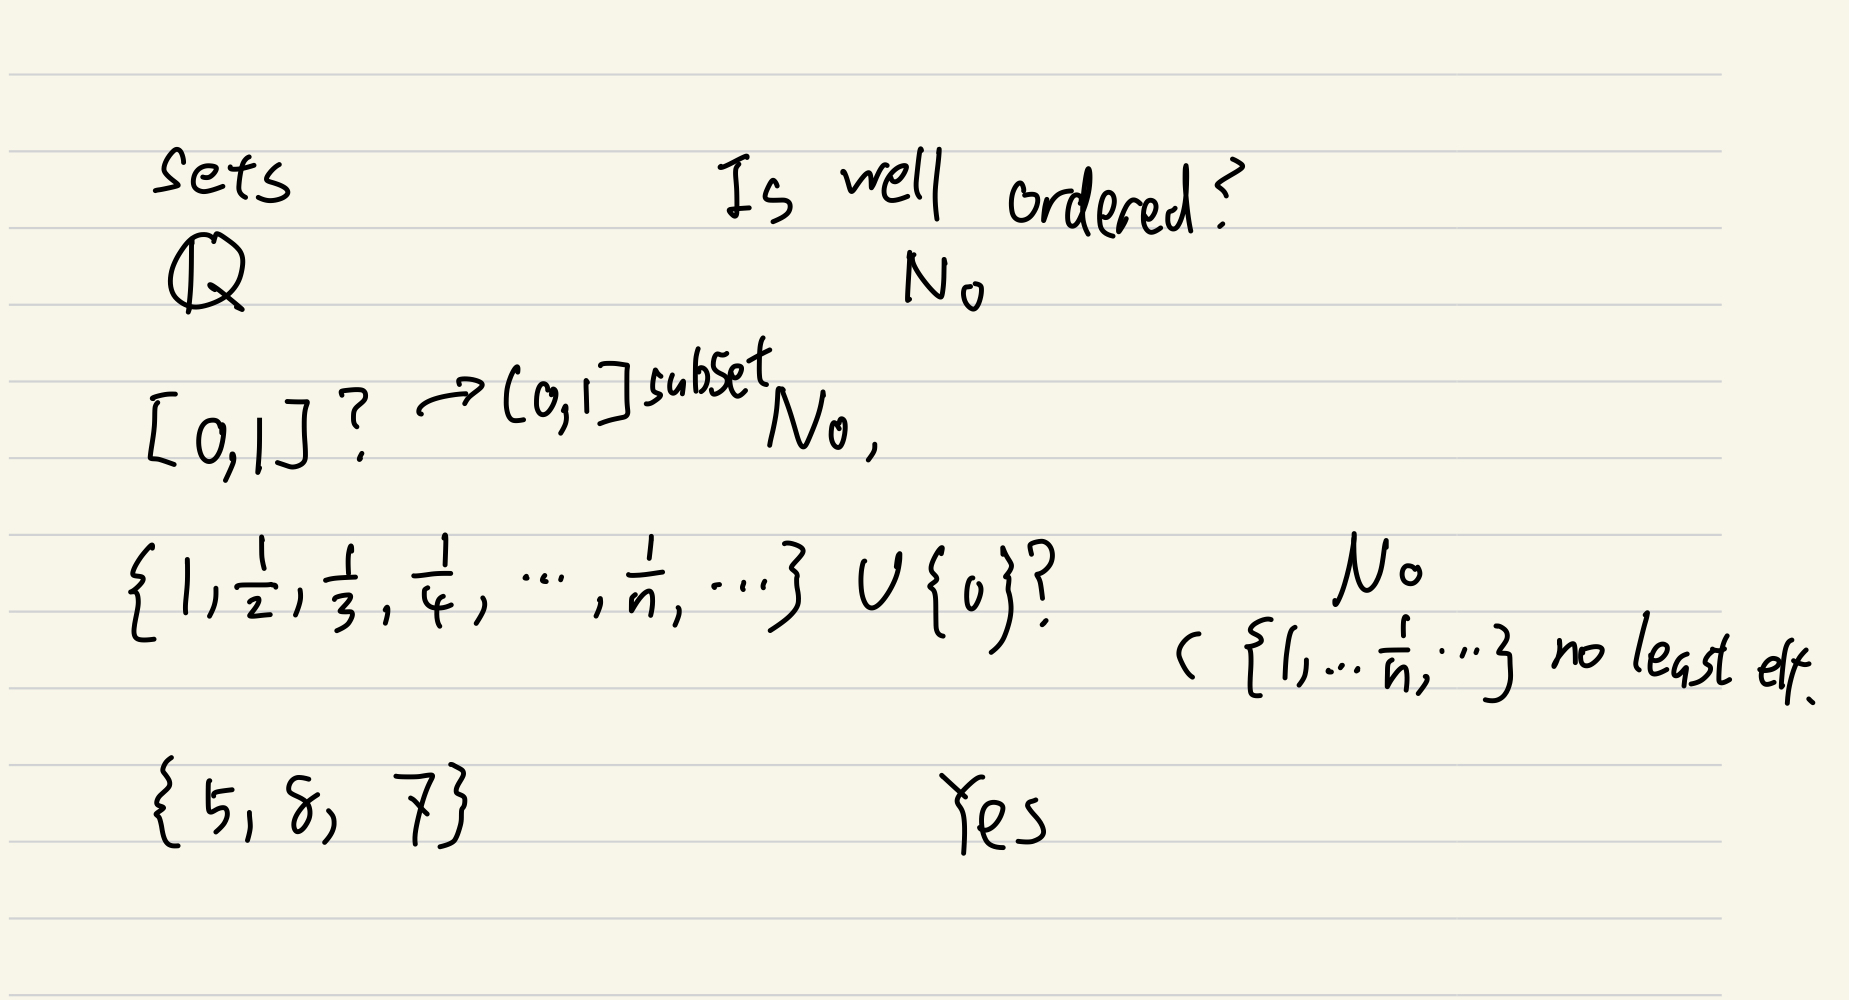 Sets Is well ordered?
ℚ No
[0,1]? → (0,1] subset No,
{1, 1/2, 1/3, 1/4, ..., 1/n, ...} ∪ {0}? No
( {1, ... 1/n, ...} no least elt.
{5, 8, 7} Yes